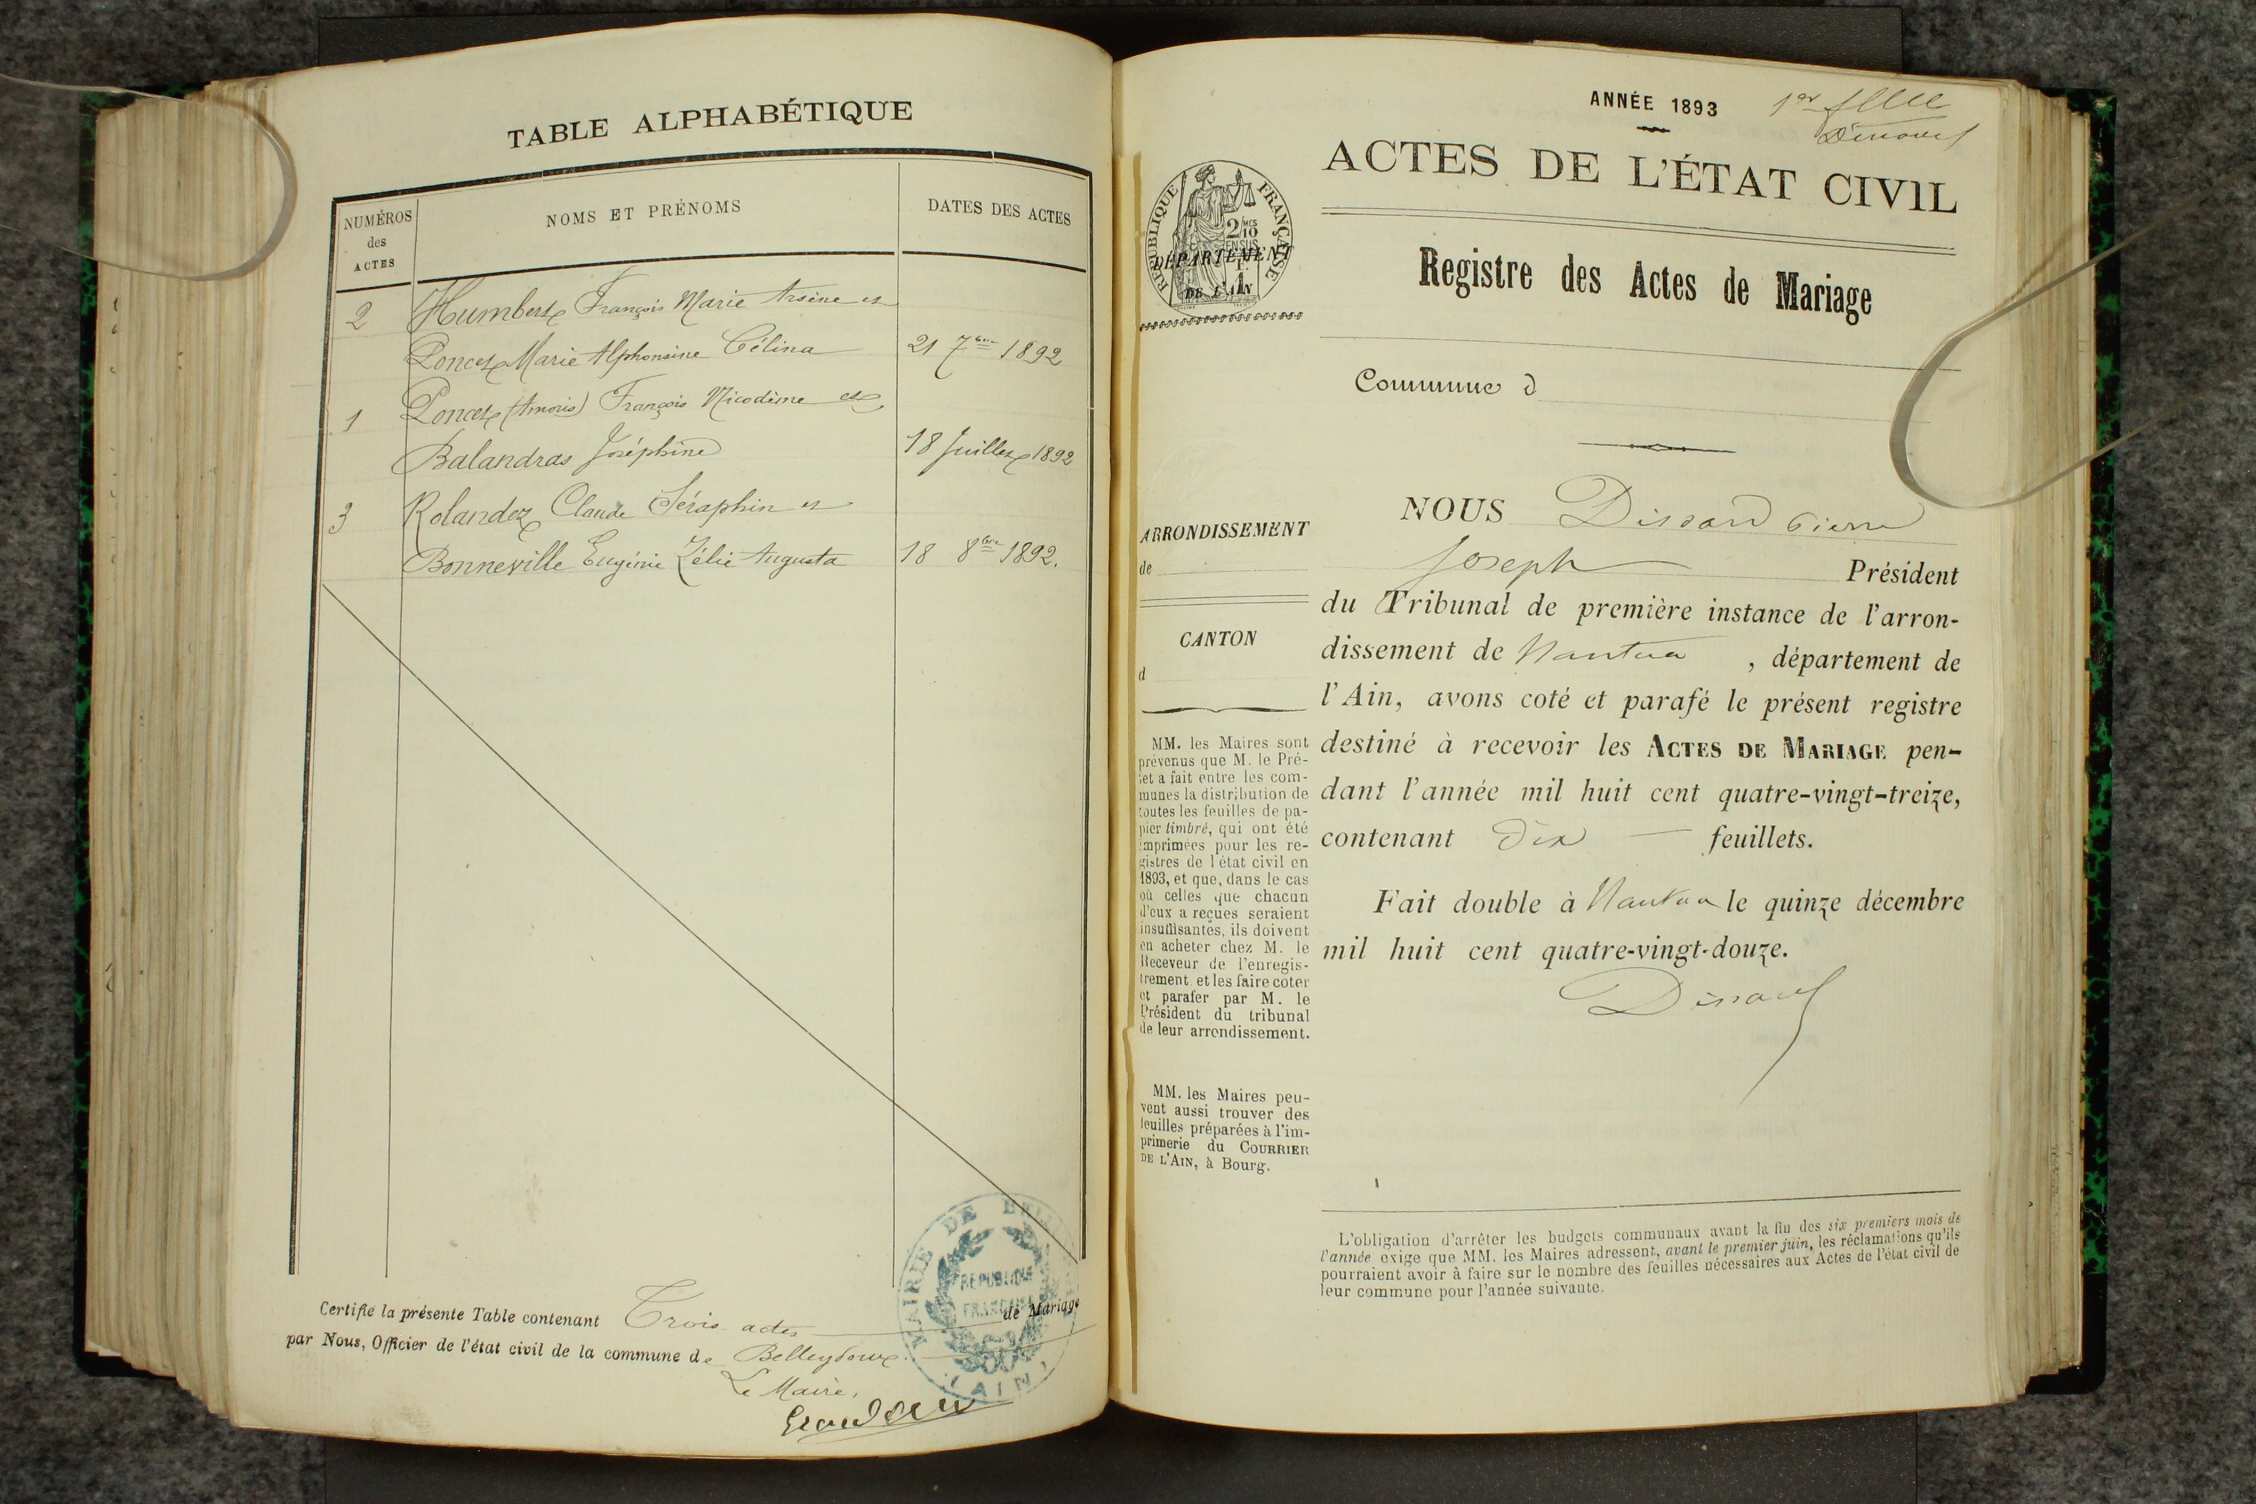 TABLE ALPHABÉTIQUE
NUMÉROS
des
ACTES
NOMS ET PRÉNOMS
DATES DES ACTES
2 Humbert François Marie Arsène et
Poncet Marie Alphonsine Célina 21 7bre 1892
1 Poncet (Amoris) François Nicodème et
Balandras Joséphine 18 Juillet 1892
3 Rolandez Claude Séraphin et
Bonneville Eugénie Zélie Augusta 18 8bre 1892.
Certifie la présente Table contenant Trois actes de Mariage
par Nous, Officier de l'état civil de la commune de Belleydoux.
Le Maire,
MAIRIE DE
RÉPUBLIQUE
FRANÇAISE
(AIN)
ANNÉE 1893
1er
ACTES DE L'ÉTAT CIVIL
Registre des Actes de Mariage
RÉPUBLIQUE FRANÇAISE
2/10
EN SUS
DÉPARTEMENT
DE L'AIN
Commune d
ARRONDISSEMENT
de
CANTON
d
MM. les Maires sont
prévenus que M. le Pré-
fet a fait entre les com-
munes la distribution de
toutes les feuilles de pa-
pier timbré, qui ont été
imprimées pour les re-
gistres de l'état civil en
1893, et que, dans le cas
où celles que chacun
d'eux a reçues seraient
insuffisantes, ils doivent
en acheter chez M. le
Receveur de l'enregis-
trement et les faire coter
et parafer par M. le
Président du tribunal
de leur arrondissement.
MM. les Maires peu-
vent aussi trouver des
feuilles préparées à l'im-
primerie du COURRIER
DE L'AIN, à Bourg.
NOUS Dissard Pierre
Joseph Président
du Tribunal de première instance de l'arron-
dissement de Nantua, département de
l'Ain, avons coté et parafé le présent registre
destiné à recevoir les ACTES DE MARIAGE pen-
dant l'année mil huit cent quatre-vingt-treize,
contenant dix feuillets.
Fait double à Nantua le quinze décembre
mil huit cent quatre-vingt-douze.
Dissard
L'obligation d'arrêter les budgets communaux avant la fin des six premiers mois de
l'année exige que MM. les Maires adressent, avant le premier juin, les réclamations qu'ils
pourraient avoir à faire sur le nombre des feuilles nécessaires aux Actes de l'état civil de
leur commune pour l'année suivante.